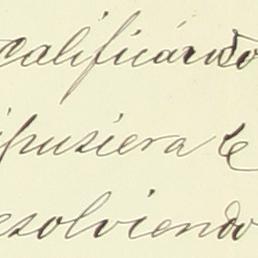 calificándo
ipusiera le
esolviendo